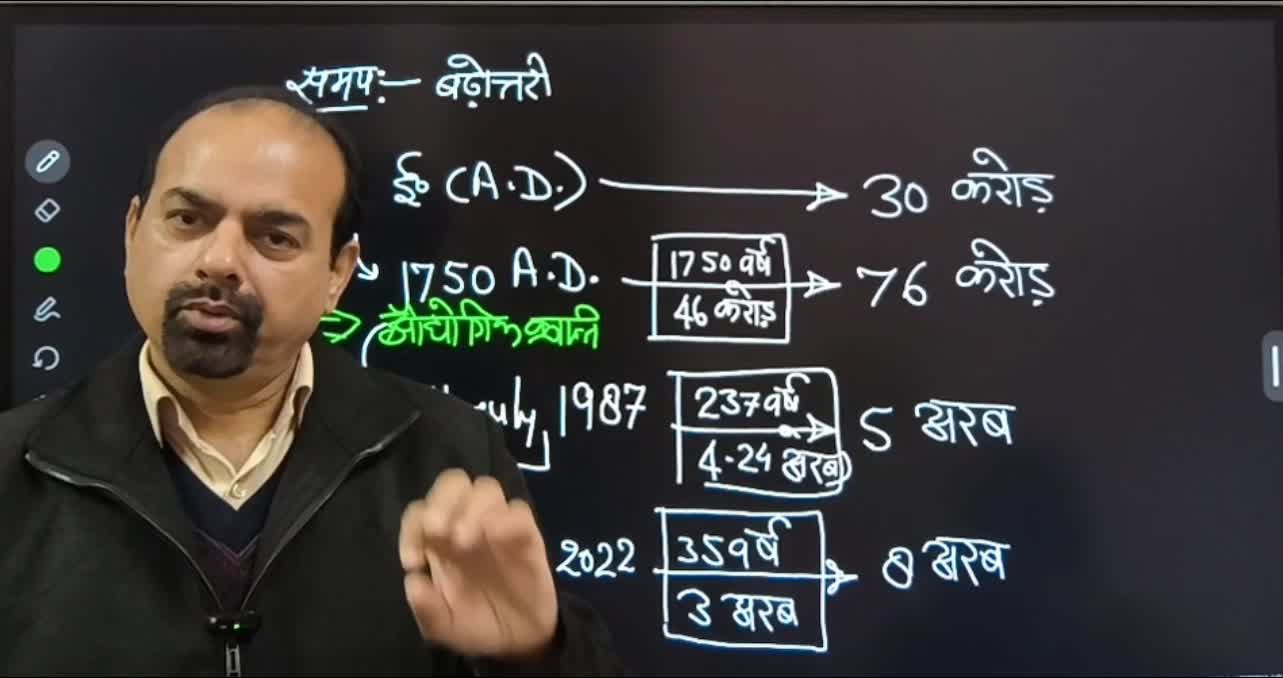 समय:— बढ़ोत्तरी
ई० (A.D.) → 30 करोड़
1750 A.D. 1750 वर्ष → 76 करोड़
46 करोड़
⇒ औद्योगिक क्रान्ति
1987 237 वर्ष → 5 अरब
4.24 अरब
2022 35 वर्ष → 8 अरब
3 अरब